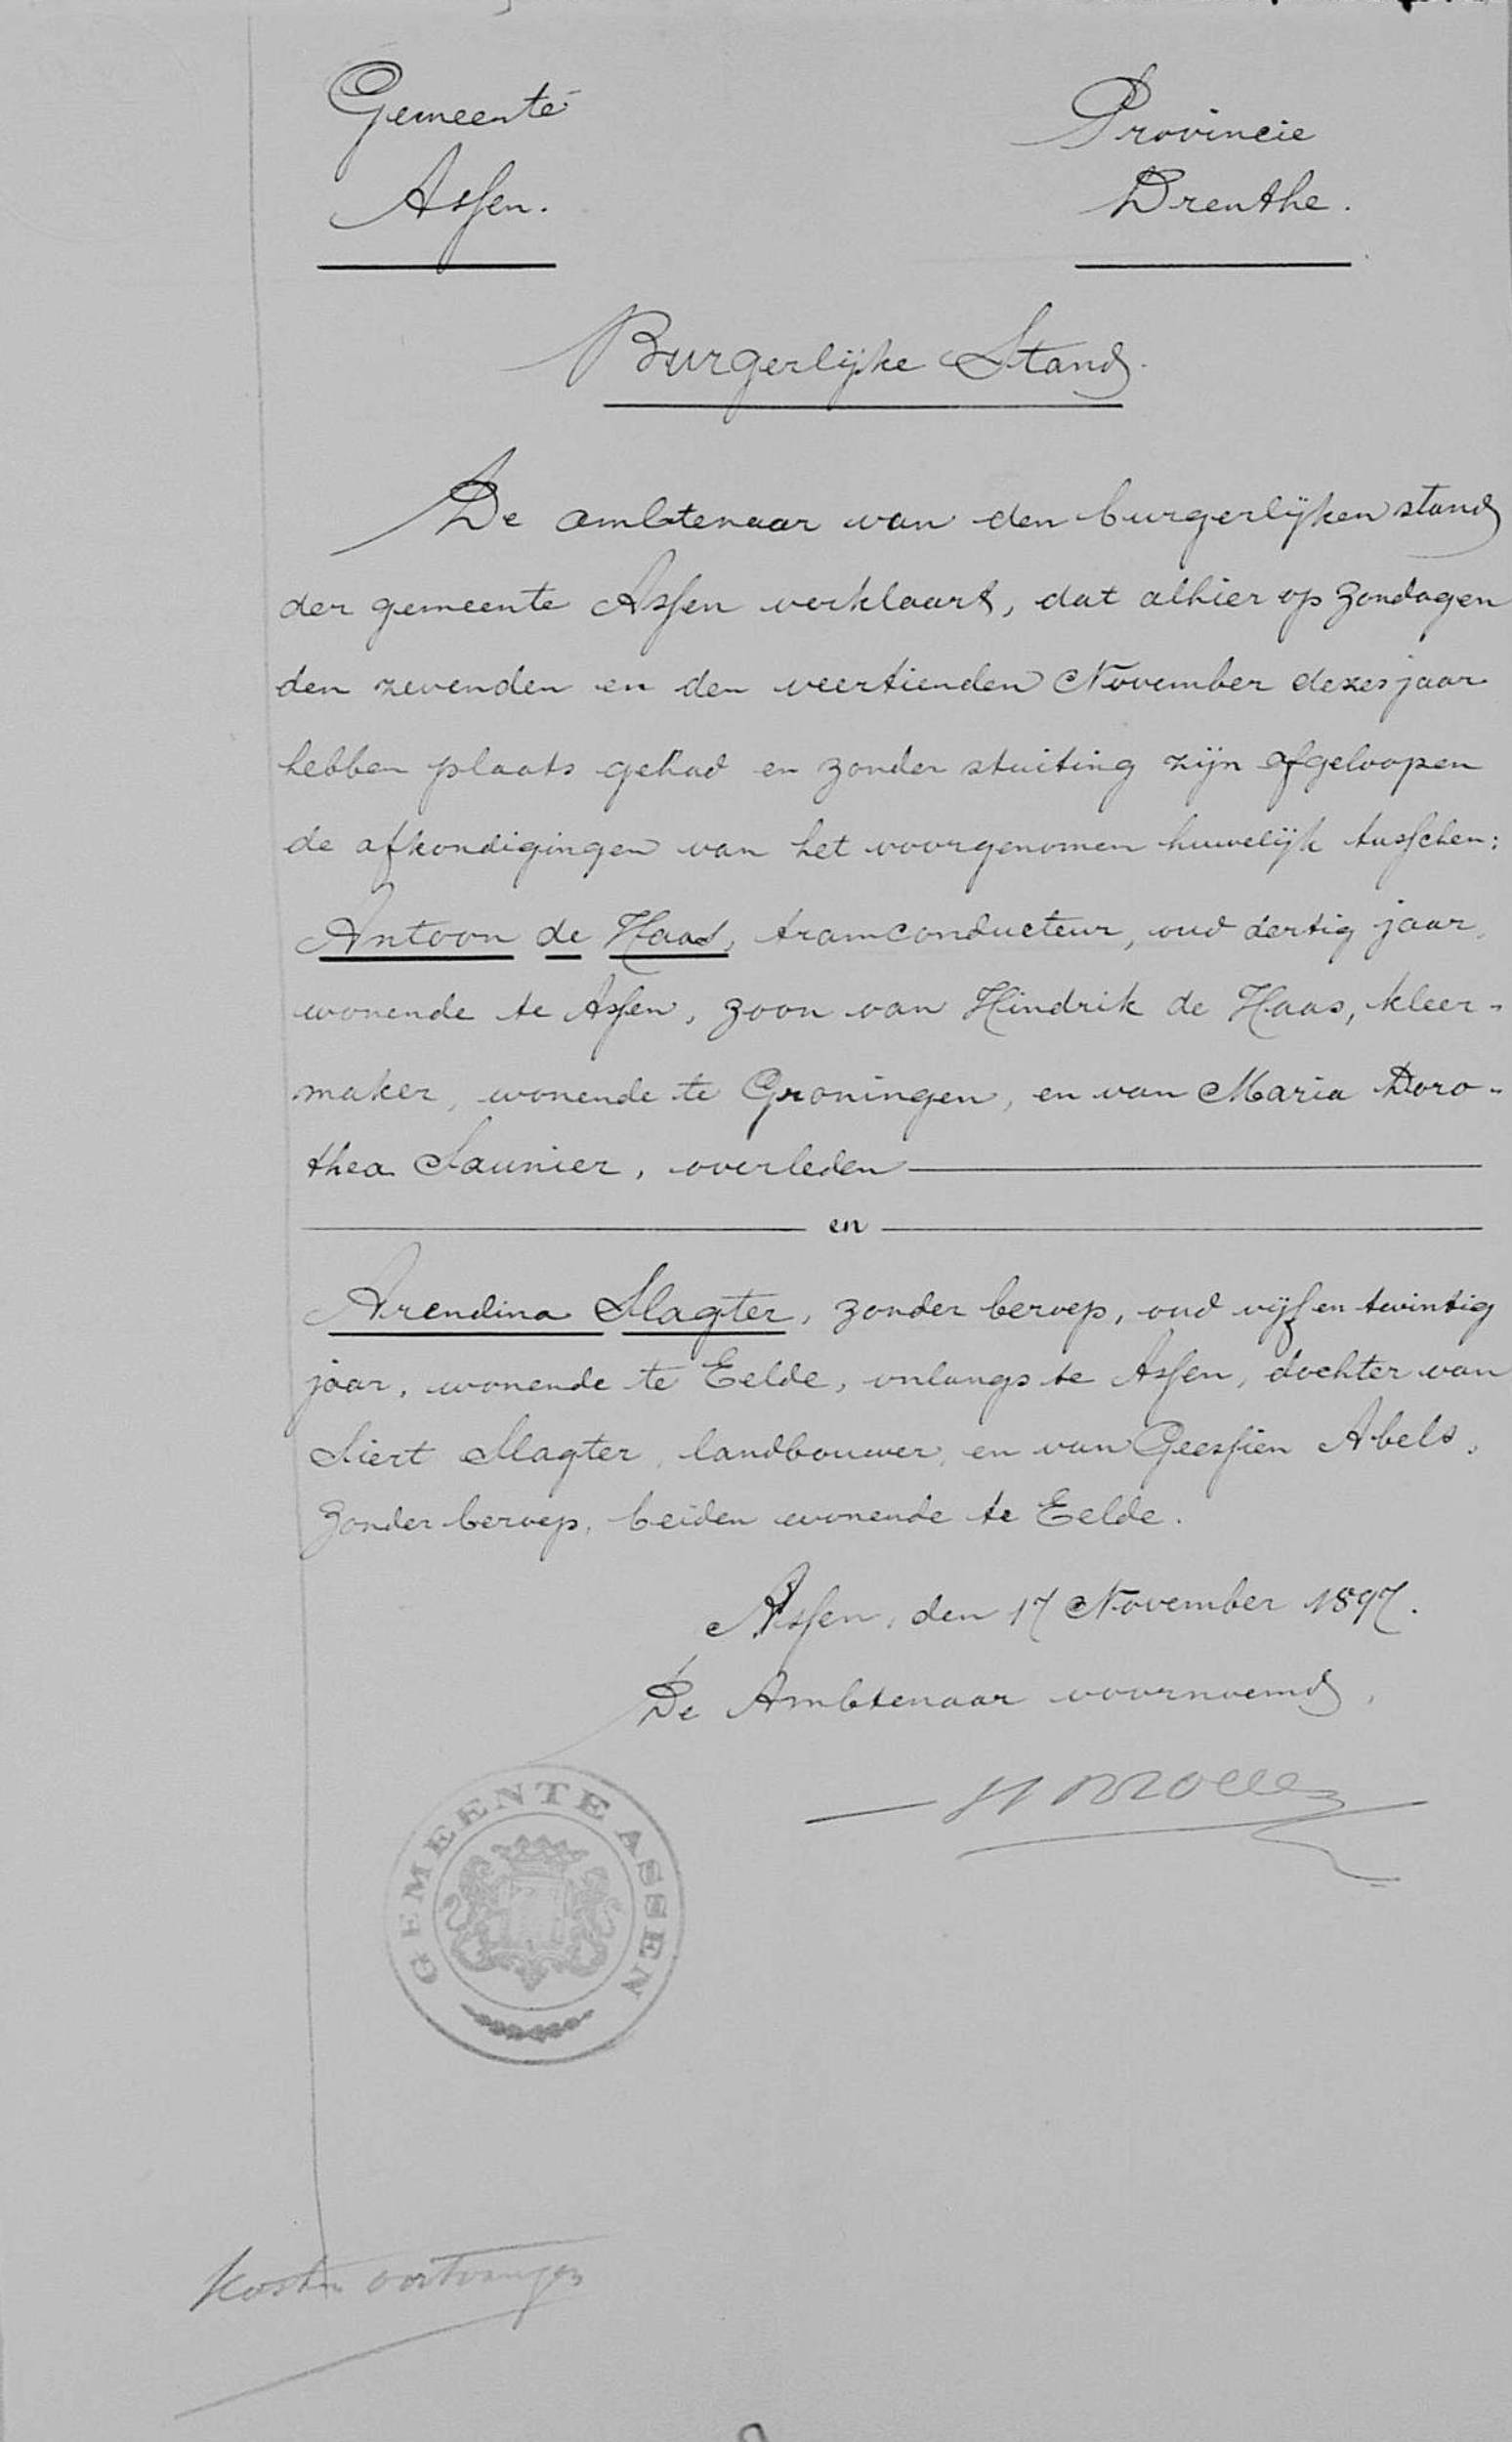 Gemeente
Assen.
Provincie
Drenthe.
Burgerlijke Stand.
De ambtenaar van den burgerlijken stand
der gemeente Assen verklaart, dat alhier op Zondagen
den zevenden en den veertienden November dezes jaar
hebben plaats gehad en zonder stuiting zijn afgeloopen
de afkondigingen van het voorgenomen huwelijk tusschen:
Antoon de Haas, tramconducteur, oud dertig jaar,
wonende te Assen, zoon van Hindrik de Haas, kleer-
maker, wonende te Groningen, en van Maria Doro-
thea Saunier, overleden
en
Arendina Slagter, zonder beroep, oud vijf en twintig
jaar, wonende te Eelde, onlangs te Assen, dochter van
Siert Slagter, landbouwer, en van Geessien Abels,
zonder beroep, beiden wonende te Eelde.
Assen, den 17 November 1897.
De Ambtenaar voornoemd,
GEMEENTE ASSEN
Kosten ontvangen